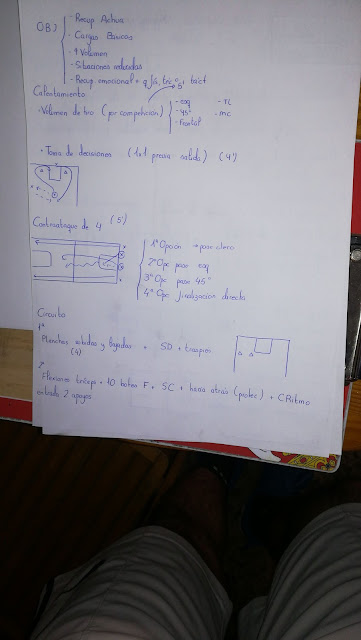 OBJ
- Recup Activa
- Cargas Bajas
- ↑ Volumen
- Situaciones reducidas
- Recup emocional +
Calentamiento
· Volumen de tiro (por competición)
- esq
- 45º
- Frontal
- TL
- mc
· Toma de decisiones (1x1 previa salida) (4')
Contraataque de 4 (5')
1ª Opción → pase
2ª Opc pase esq
3ª Opc pase 45º
4ª Opc finalización directa
Circuito
1º
Planchas subidas y bajadas + SD + traspies
(4)
2º
Flexiones bíceps + 10 botes F + SC + hacia atrás (poste) + CRitmo
entrada 2 apoyos